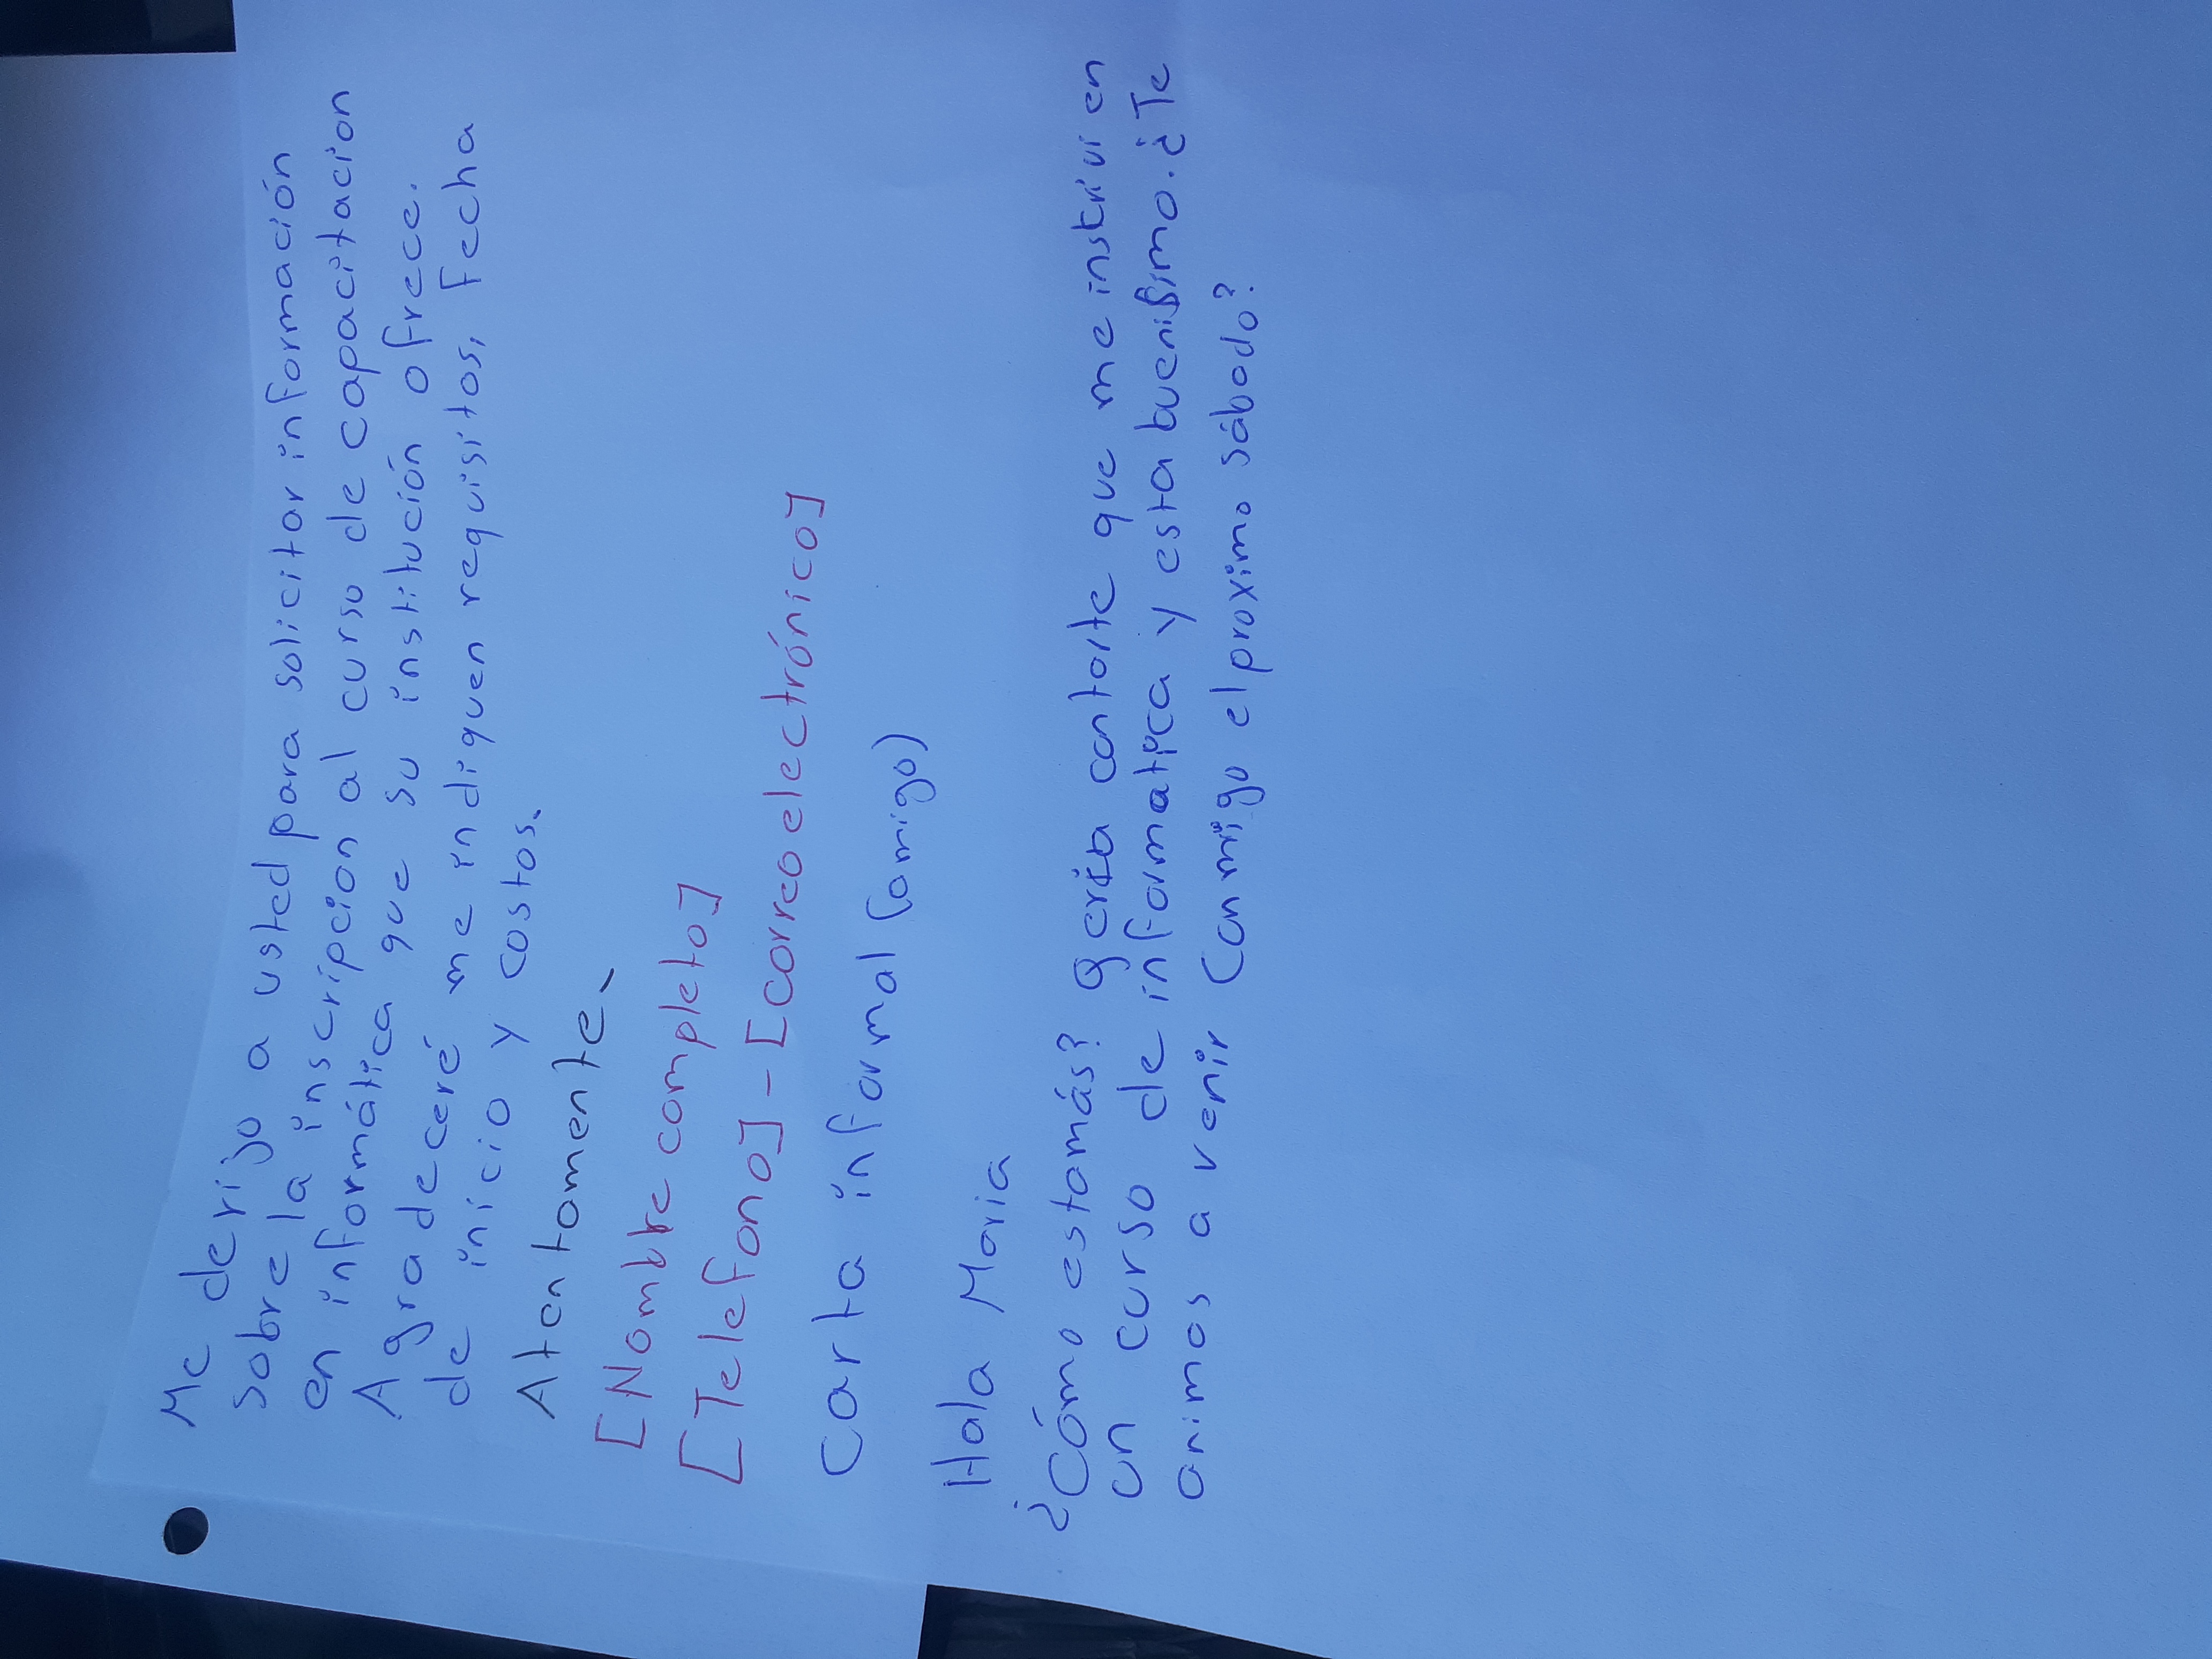 Me derijo a usted para solicitar información
sobre la inscripcion al curso de capacitacion
en informática que su institución ofrece.
Agradeceré me indiquen requisitos, fecha
de inicio y costos.
Atentamente.
[Nombre completo]
[Telefono] - [correo electrónico]
Carta informal (amigo)
Hola Maria
¿Cómo estamás? qeria contarte que me instriui en
un curso de informatica y esta buenisimo. ¿Te
animos a venir conmigo el proximo sábado?